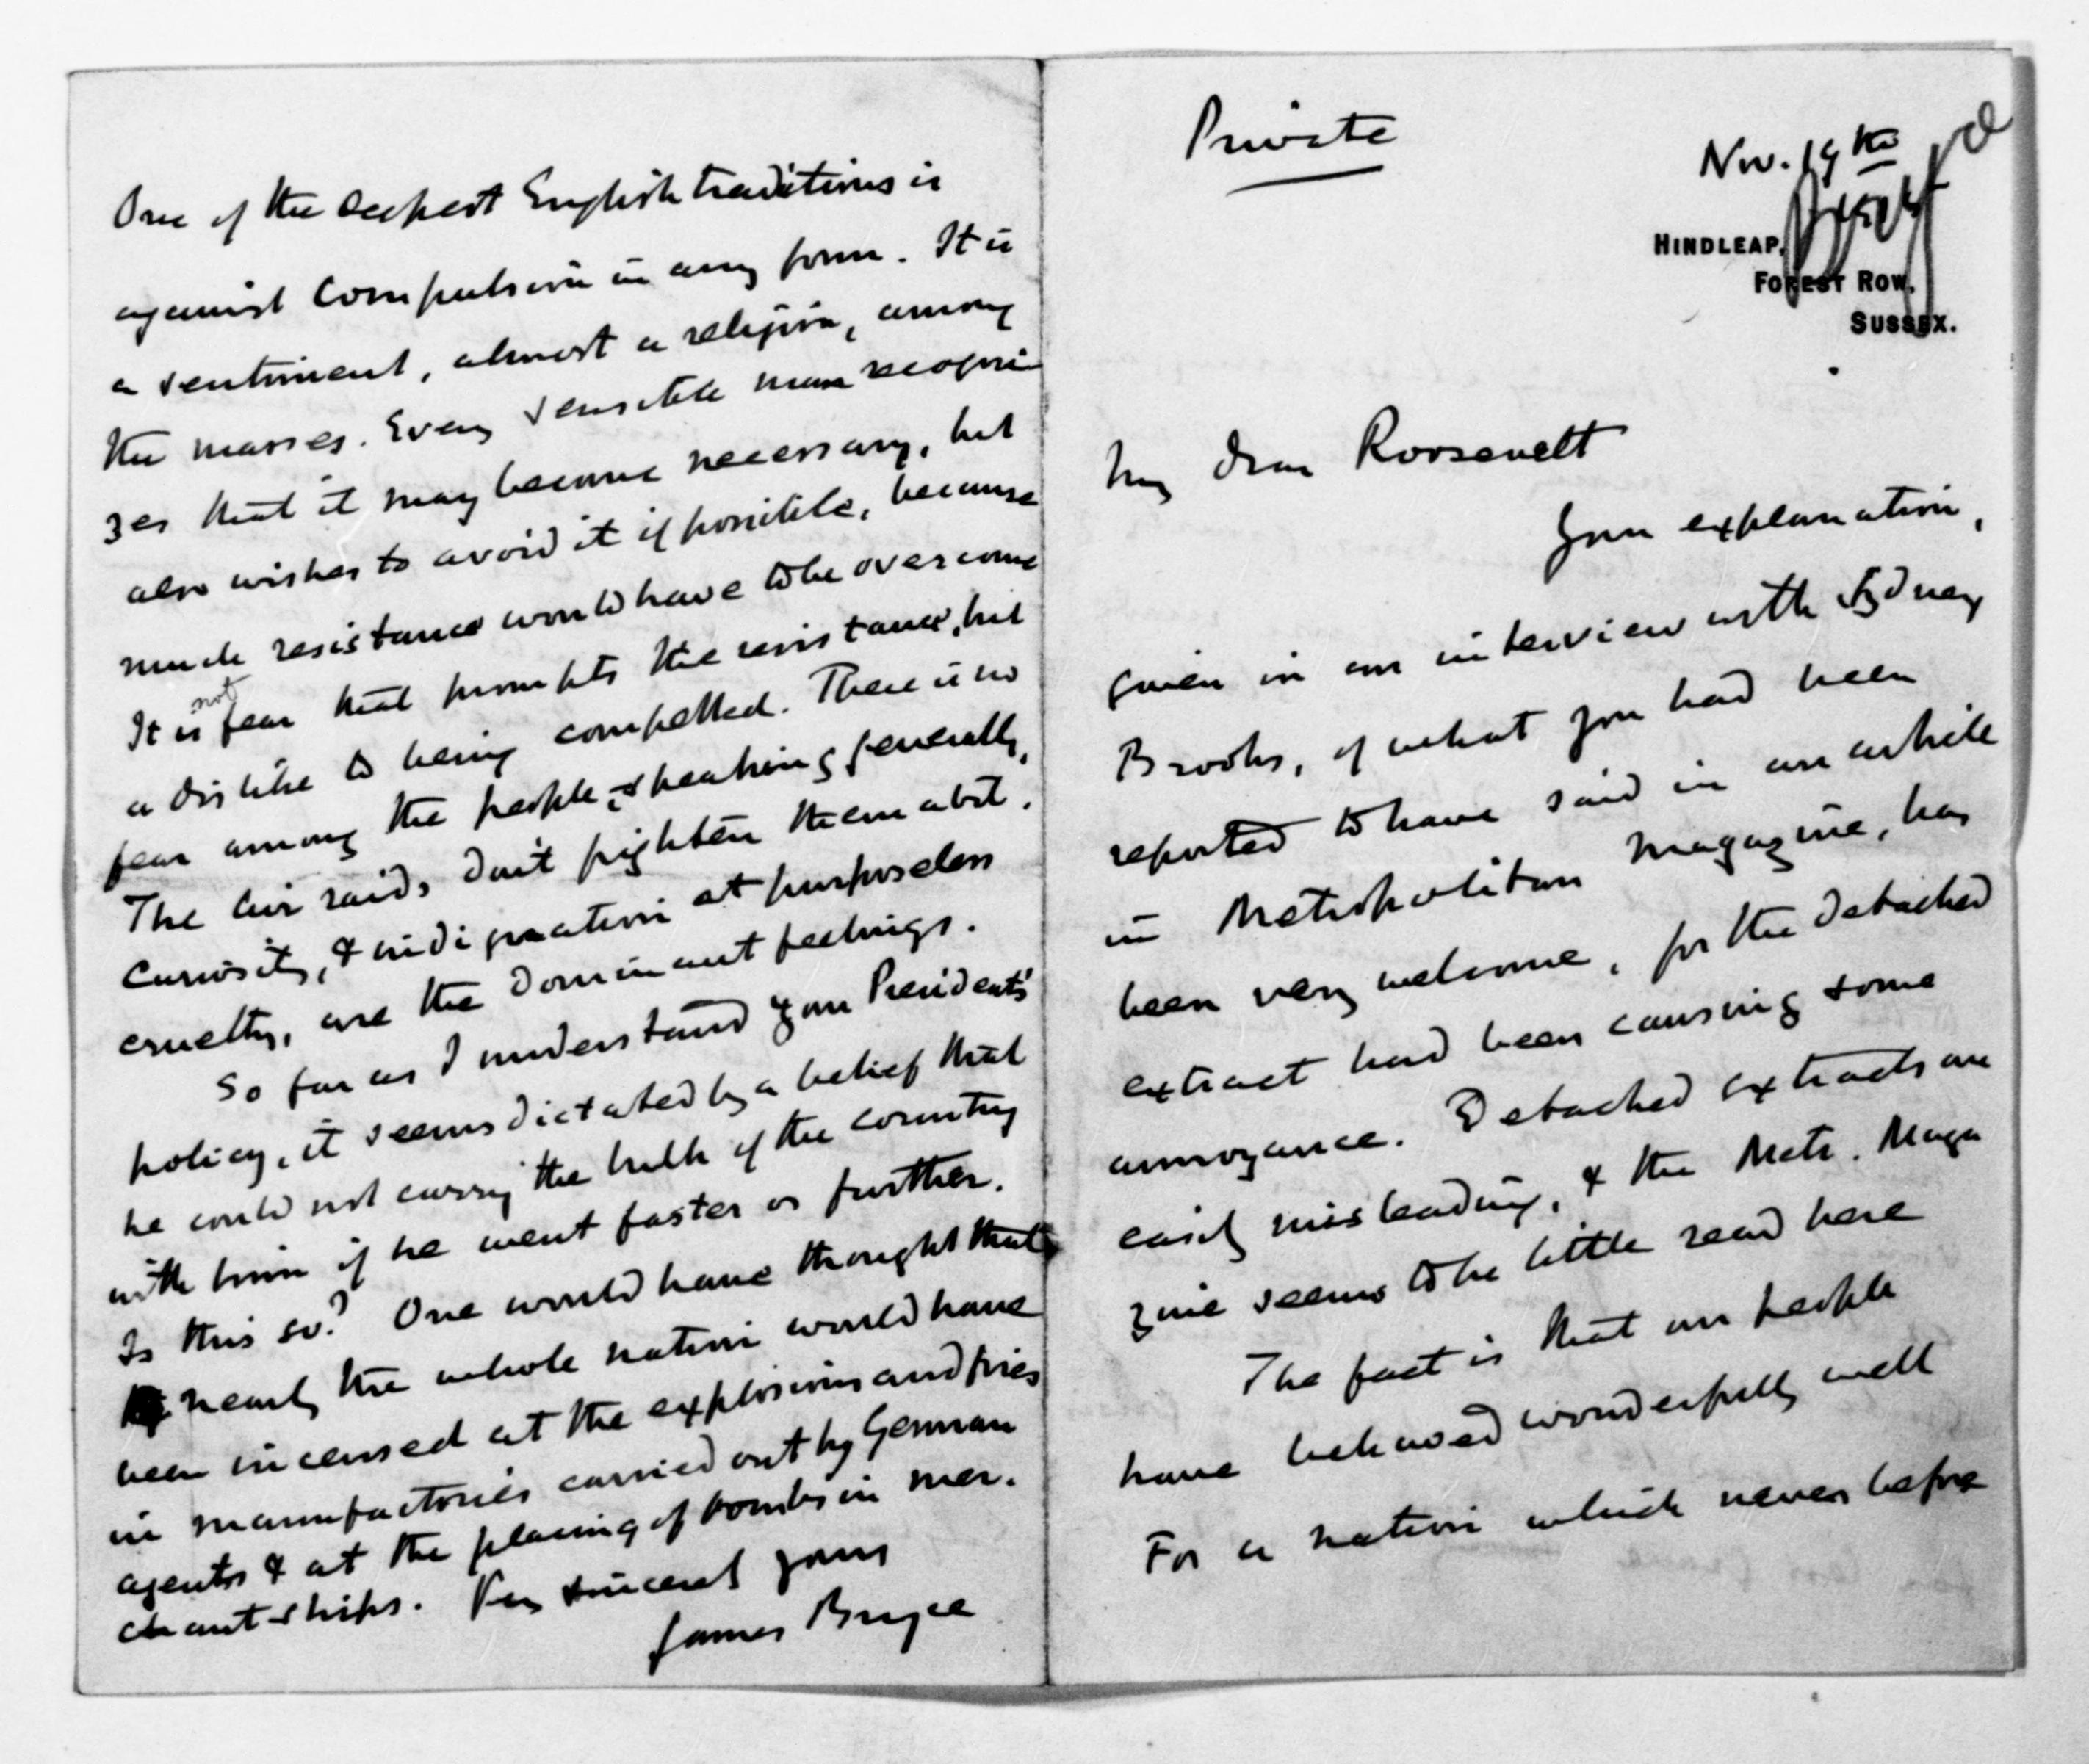 Private
Nov. 19th
HINDLEAP,
FOREST ROW,
SUSSEX.
My dear Roosevelt
Your explanation,
given in an interview with Sydney
Brooks, of what you had been
reported to have said in an article
in Metropolitan Magazine, has
been very welcome, for the detached
extract had been causing some
annoyance. Detached extracts are
easily misleading, & the Metr. Maga
zine seems to be little read here
The fact is that our people
have behaved wonderfully well
For a nation which never before
One of the deepest English traditions is
against Compulsion in any form. It is
a sentiment, almost a religion, among
the masses. Every sensible man recogni
zes that it may become necessary, but
also wishes to avoid it if possible, because
much resistance would have to be overcome
It is not fear that prompts the resistance, but
a dislike to being compelled. There is no
fear among the people, speaking generally,
The air raids don't frighten them a bit.
Curiosity, & indignation at purposeless
cruelty, are the dominant feelings.
So far as I understand your President's
policy, it seems dictated by a belief that
he could not carry the bulk of the country
with him if he went faster or further.
Is this so? One would have thought that
nearly the whole nation would have
been incensed at the explosions and fires
in manufactories carried out by German
agents & at the placing of bombs in mer-
chant-ships. Very sincerely yours
James Bryce